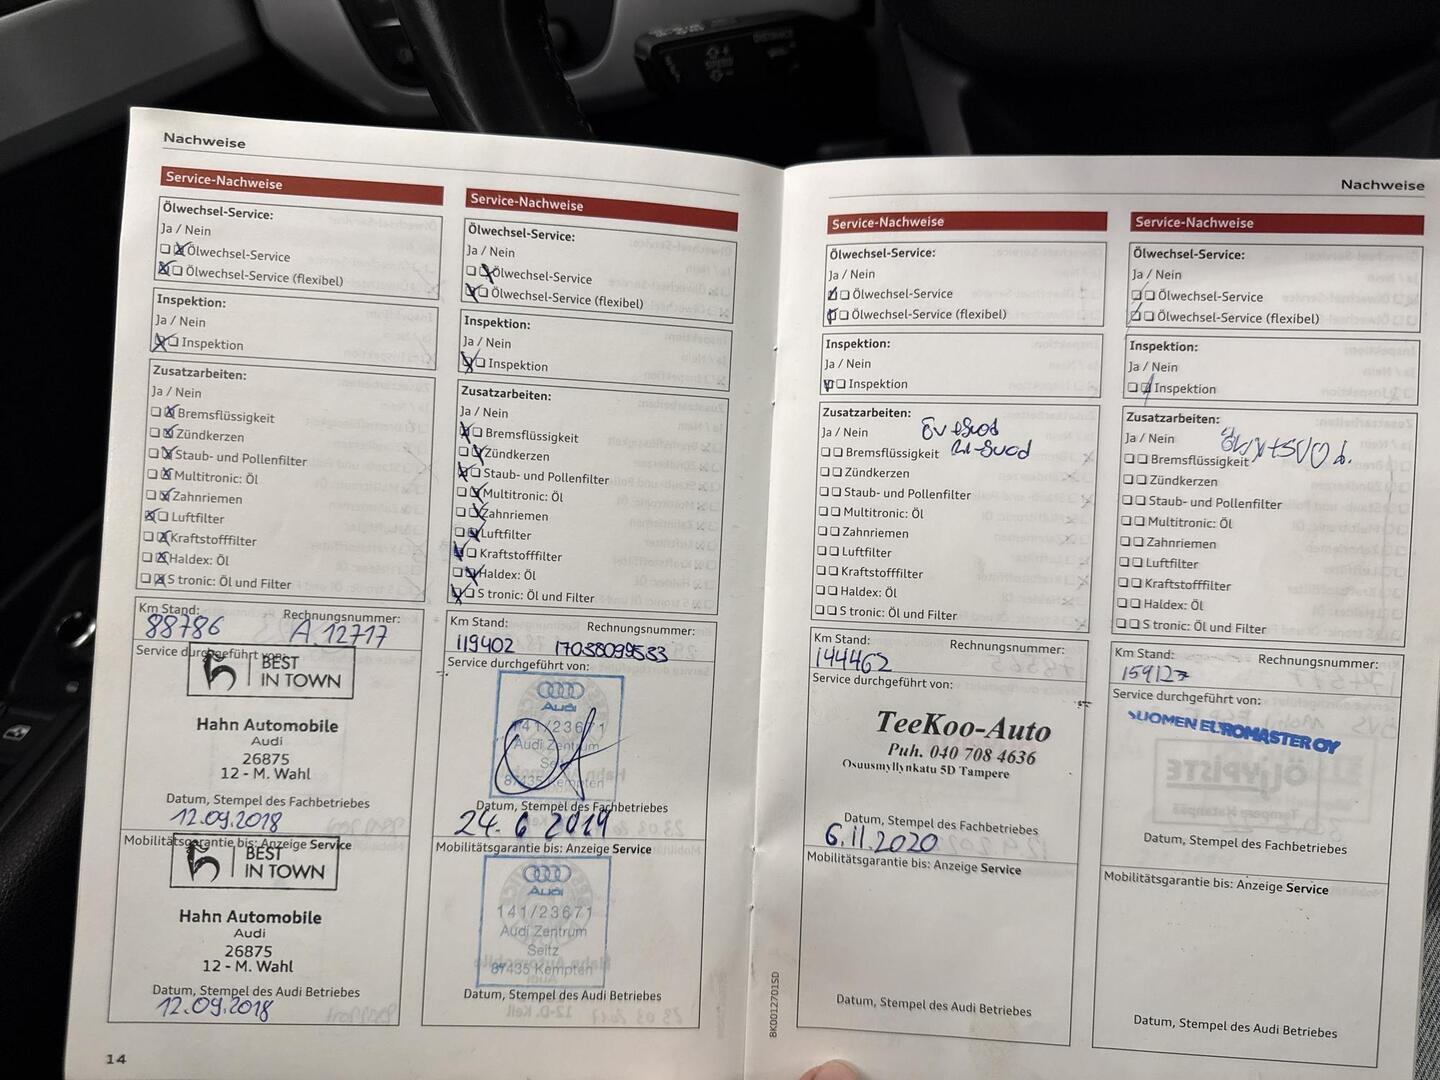 Nachweise
Service-Nachweise
Ölwechsel-Service:
Ja / Nein
Ölwechsel-Service
Ölwechsel-Service (flexibel)
Inspektion:
Ja / Nein
Inspektion
Zusatzarbeiten:
Ja / Nein
Bremsflüssigkeit
Zündkerzen
Staub- und Pollenfilter
Multitronic: Öl
Zahnriemen
Luftfilter
Kraftstofffilter
Haldex: Öl
S tronic: Öl und Filter
Km Stand: Rechnungsnummer:
88786 A 12717
Service durchgeführt von:
BEST
IN TOWN
Hahn Automobile
Audi
26875
12 - M. Wahl
Datum, Stempel des Fachbetriebes
12.09.2018
Mobilitätsgarantie bis: Anzeige Service
BEST
IN TOWN
Hahn Automobile
Audi
26875
12 - M. Wahl
Datum, Stempel des Audi Betriebes
12.09.2018
14
Service-Nachweise
Ölwechsel-Service:
Ja / Nein
Ölwechsel-Service
Ölwechsel-Service (flexibel)
Inspektion:
Ja / Nein
Inspektion
Zusatzarbeiten:
Ja / Nein
Bremsflüssigkeit
Zündkerzen
Staub- und Pollenfilter
Multitronic: Öl
Zahnriemen
Luftfilter
Kraftstofffilter
Haldex: Öl
S tronic: Öl und Filter
Km Stand: Rechnungsnummer:
119402
Service durchgeführt von:
Audi
141/23671
Audi Zentrum
Seitz
87435 Kempten
Datum, Stempel des Fachbetriebes
24. 6 2019
Mobilitätsgarantie bis: Anzeige Service
Audi
141/23671
Audi Zentrum
Seitz
87435 Kempten
Datum, Stempel des Audi Betriebes
Nachweise
Service-Nachweise
Ölwechsel-Service:
Ja / Nein
Ölwechsel-Service
Ölwechsel-Service (flexibel)
Inspektion:
Ja / Nein
Inspektion
Zusatzarbeiten:
Ja / Nein
Bremsflüssigkeit
Zündkerzen
Staub- und Pollenfilter
Multitronic: Öl
Zahnriemen
Luftfilter
Kraftstofffilter
Haldex: Öl
S tronic: Öl und Filter
Km Stand: Rechnungsnummer:
144462
Service durchgeführt von:
TeeKoo-Auto
Puh. 040 708 4636
Osuusmyllynkatu 5D Tampere
Datum, Stempel des Fachbetriebes
6.11.2020
Mobilitätsgarantie bis: Anzeige Service
Datum, Stempel des Audi Betriebes
8K0012701SD
Service-Nachweise
Ölwechsel-Service:
Ja / Nein
Ölwechsel-Service
Ölwechsel-Service (flexibel)
Inspektion:
Ja / Nein
Inspektion
Zusatzarbeiten:
Ja / Nein
Bremsflüssigkeit
Zündkerzen
Staub- und Pollenfilter
Multitronic: Öl
Zahnriemen
Luftfilter
Kraftstofffilter
Haldex: Öl
S tronic: Öl und Filter
Km Stand: Rechnungsnummer:
159127
Service durchgeführt von:
SUOMEN EUROMASTER OY
Datum, Stempel des Fachbetriebes
Mobilitätsgarantie bis: Anzeige Service
Datum, Stempel des Audi Betriebes